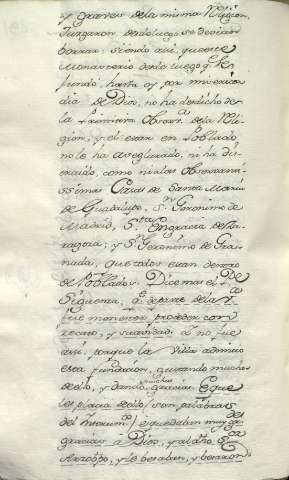 y graves de la misma Religion,
Jurgaron desde luego se devian
borrar: siendo asi, que este
Monasterio desde luego q̃ se
fundò, hasta oy por miserico
dia de Dios, no ha desdicho de
la Primitiva Observ.ª de la Reli
gion; y el estar en Poblado
no le ha aseglarado, ni ha dis
traido, como ni a las Observanti
ssimas Casas de Santa Maria
de Guadalupe, Sⁿ Geronimo de
Madrid, Sᵗᵃ Engracia de Za
ragoza; y Sⁿ Geronimo de Gra
nada, que todos estan dentro
de Poblados. Dice mas el Pᵉ
Siguenza, q̃ de parte de la Vᵃ
fue menester proceder con
recato, y suavidad. Y no fue
asi, porque la Villa admitio
esta fundacion, gustando mucho
dello, y dando muchas gracias. Et que
les placia dello (son palabras
del Instrum.ᵗᵒ) è quedaban muy
gracias à Dios, y al dho Sʳ
Arzobpo, y le besaban, y besaron